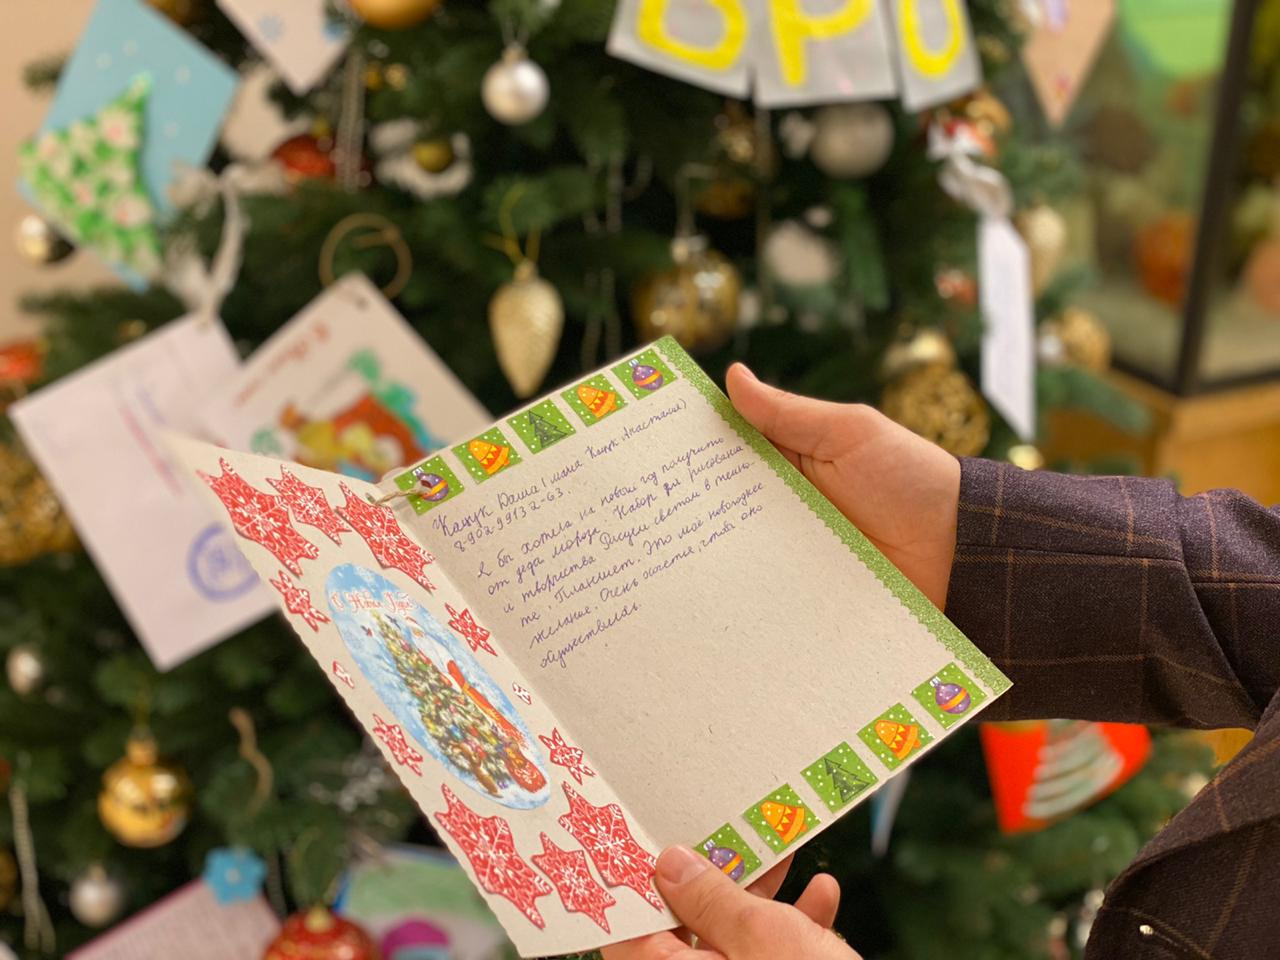 ДРО
Кащук Даша (мама Кащук Анастасия)
8-902-99132-63.
Я бы хотела на новый год получить
от деда мороза. Набор для рисования
и творчества Рисуем светом в темно-
те, Планшет. Это моё новогоднее
желание. Очень хочется, чтобы оно
осуществилось.
С Новым Годом